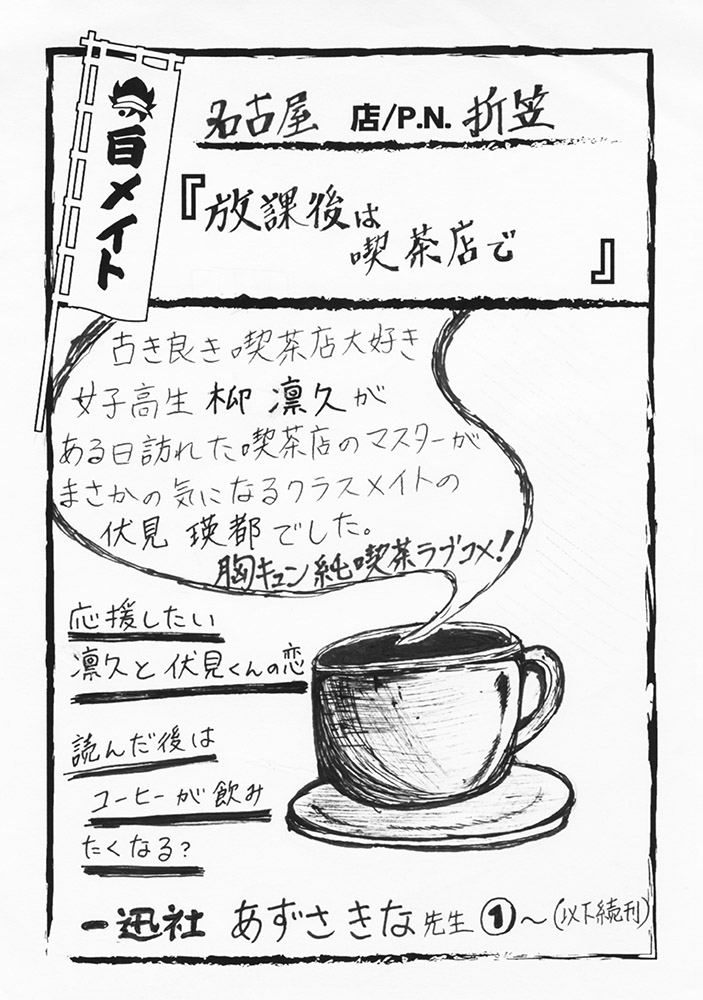 百メイト
名古屋 店/P.N. 折笠
『放課後は
喫茶店で』
古き良き喫茶店大好き
女子高生 柳 凛久が
ある日訪れた喫茶店のマスターが
まさかの気になるクラスメイトの
伏見 瑛都でした。
胸キュン純喫茶ラブコメ!
応援したい
凛久と伏見くんの恋
読んだ後は
コーヒーが飲み
たくなる?
一迅社 あずさきな先生 ①~(以下続刊)